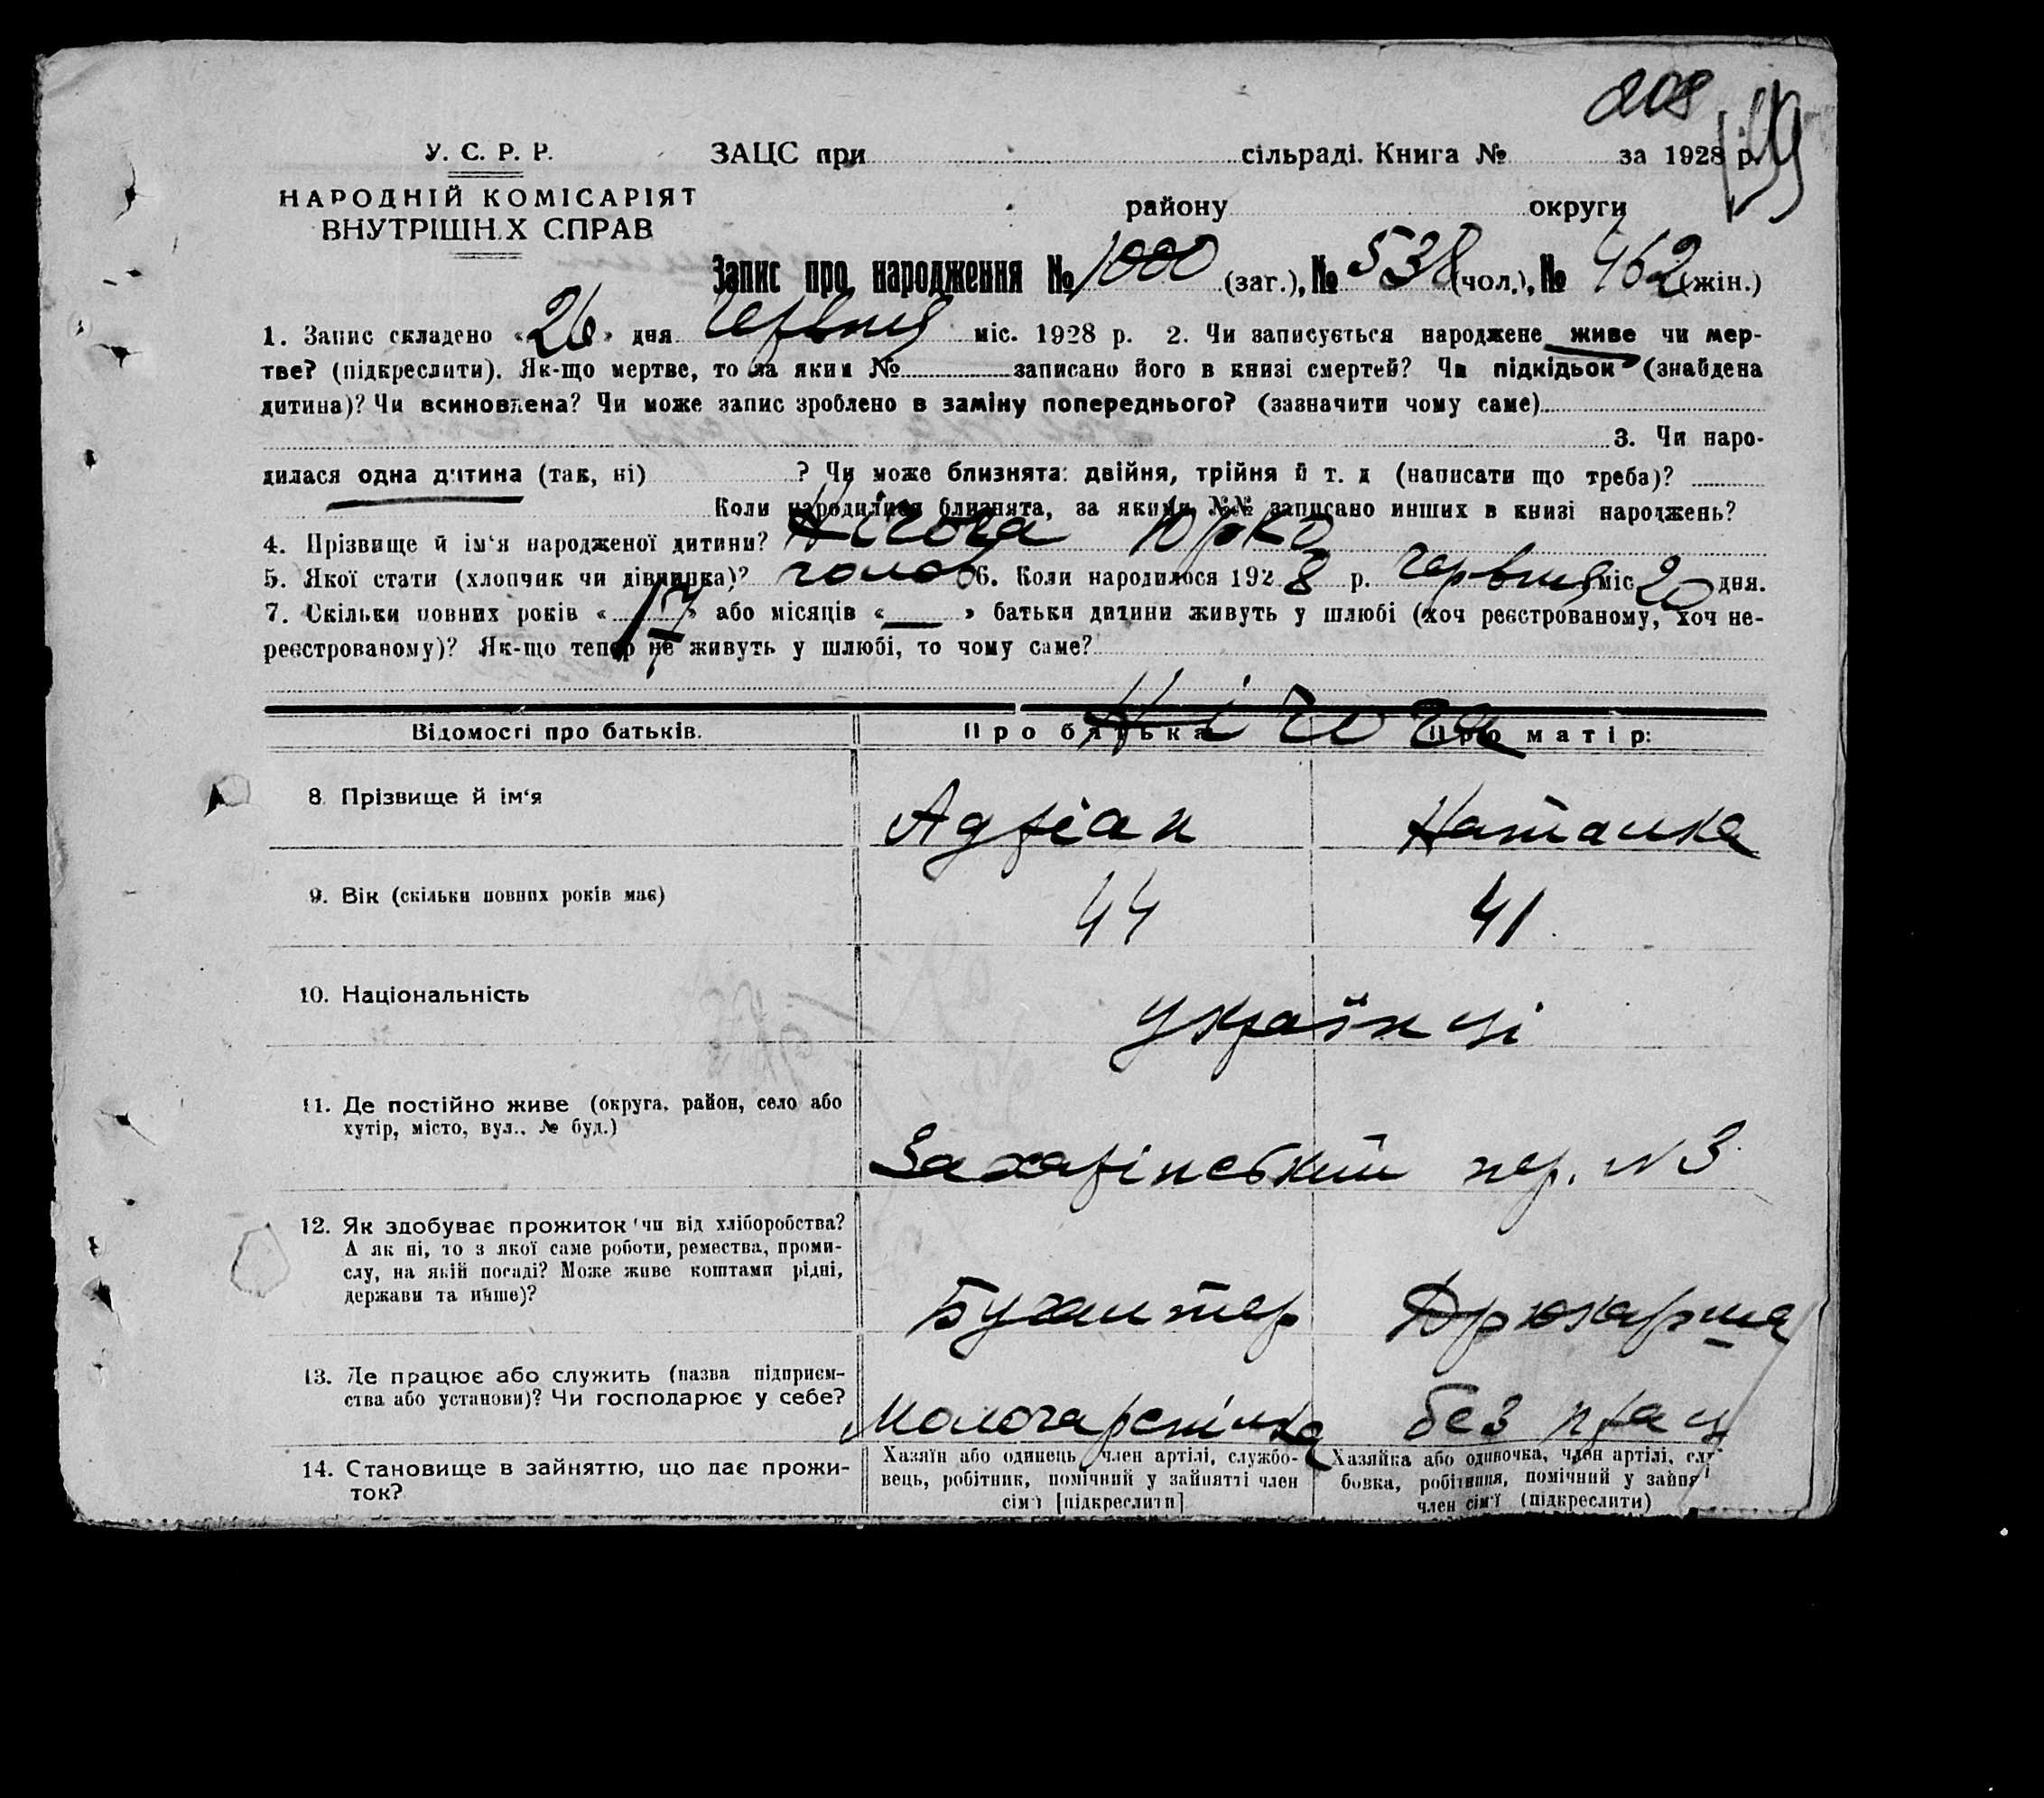 208
159
У. С. Р. Р.
ЗАЦС при сільраді. Книга № за 1928 р.
НАРОДНІЙ КОМІСАРІЯТ
ВНУТРІШН.Х СПРАВ
району округи
Запис про народження № 1000 (заг.), № 538 (чол.), № 462 (жін.)
1. Запис складено «26» дня червня міс. 1928 р. 2. Чи записується народжене живе чи мер-
тве? (підкреслити). Як-що мертве, то за яким № записано його в книзі смертей? Чи підкідьок (знайдена
дитина)? Чи всиновлена? Чи може запис зроблено в заміну попереднього? (зазначити чому саме)
3. Чи наро-
дилася одна дитина (так, ні) ? Чи може близнята: двійня, трійня й т. д (написати що треба)?
Коли народилися близнята, за якими №№ записано инших в книзі народжень?
4. Прізвище й ім'я народженої дитини? Нічога Юрко
5. Якої стати (хлопчик чи дівчинка)? чолов 6. Коли народилося 1928 р. червня міс 20 дня.
7. Скільки повних років «17» або місяців «—» батьки дитини живуть у шлюбі (хоч реєстрованому, хоч не-
реєстрованому)? Як-що тепер не живуть у шлюбі, то чому саме?
Нічога
Відомості про батьків. Про батька Про матір:
8. Прізвище й ім'я Адріан Наталка
9. Вік (скільки повних років має) 44 41
10. Національність українці
11. Де постійно живе (округа, район, село або
хутір, місто, вул., № буд.)
Захарінський пер. N 3
12. Як здобуває прожиток чи від хліборобства?
А як ні, то з якої саме роботи, ремества, проми-
слу, на якій посаді? Може живе коштами рідні,
держави та инше)?
Бухалтер Дрюкарша
13. Де працює або служить (назва підприєм-
ства або установи)? Чи господарює у себе?
без прац
14. Становище в зайняттю, що дає прожи-
ток?
Хазяїн або одинець член артілі, службо-
вець, робітник, помічний у зайнятті член
сім'ї [підкреслити]
Хазяйка або одиночка, член артілі, слу
бовка, робітниця, помічний у зайня
член сім'ї (підкреслити)